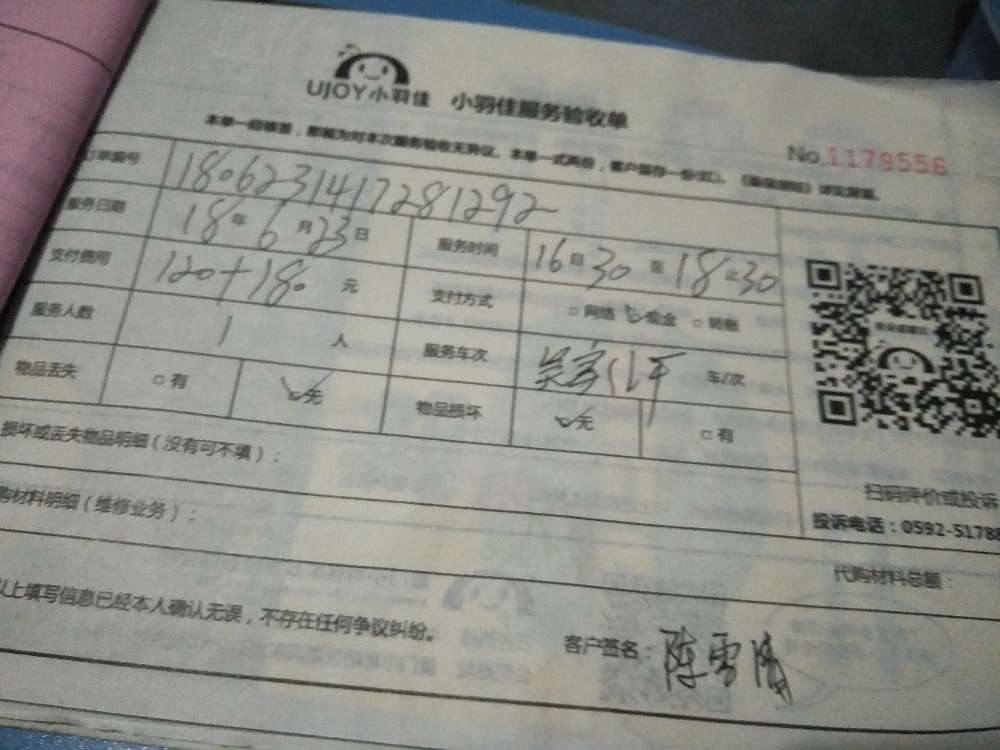 UJOY小羽佳 小羽佳服务验收单
本单一经核签，即视为对本次服务验收无异议。本单一式两份，客户留存一份
No.1179556
订单编号 1806231417281292
服务日期 18年6月23日 服务时间 16 30 至 18 30
支付费用 120+180 元 支付方式 □网络 ☑现金 □转账
服务人数 1 人 服务车次 车/次
物品丢失 □有 ☑无 物品损坏 ☑无 □有
损坏或丢失物品明细（没有可不填）：
购材料明细（维修业务）：
扫码评价或投诉
投诉电话：0592-5178
代购材料总额：
以上填写信息已经本人确认无误，不存在任何争议纠纷。
客户签名：陈雪